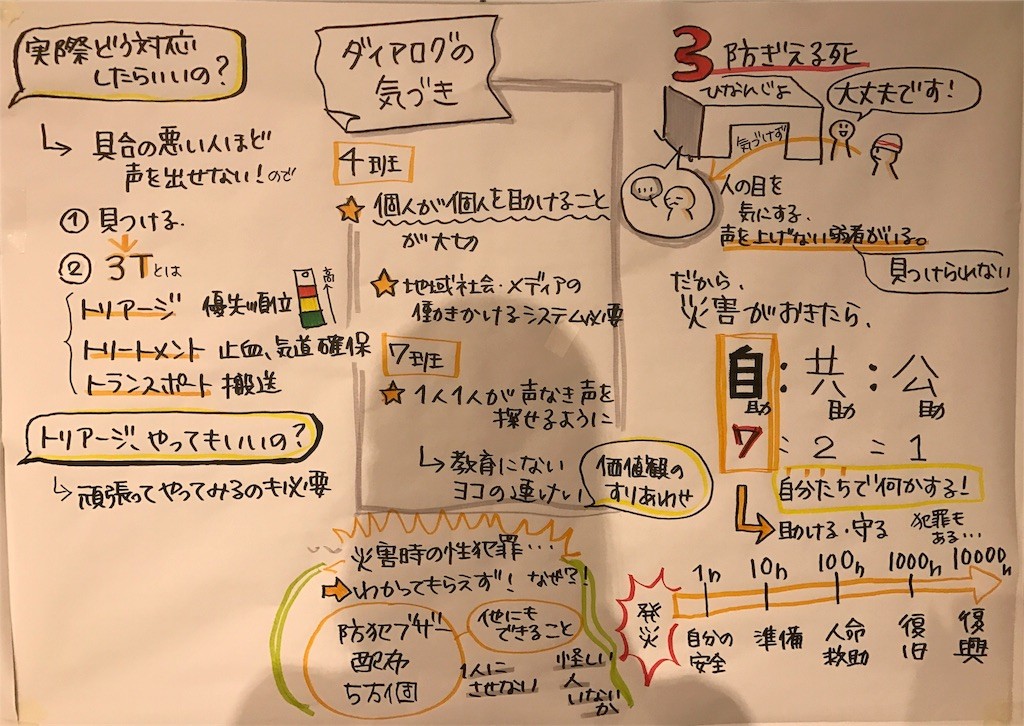 実際どう対応
したらいいの？
具合の悪い人ほど
声を出せない！ので
① 見つける.
② 3Tとは
トリアージ 優先順位
高
トリートメント 止血、気道確保
トランスポート 搬送
トリアージ、やってもいいの？
頑張ってやってみるのも必要
ダイアログの
気づき
4班
個人が個人を助けること
が大切
地域社会・メディアの
働きかけるシステム必要
7班
1人1人が声なき声を
探せるように
教育にない
ヨコの連けい
価値観の
すりあわせ
災害時の性犯罪…
わかってもらえず！なぜ？！
防犯ブザー
配布
5万個
他にも
できること
1人に
させない
怪しい
人
いないか
3 防ぎえる死
ひなんじょ
気づけず
大丈夫です！
…
人の目を
気にする.
声を上げない弱者がいる。
見つけられない
だから、
災害がおきたら、
自助:共助:公助
7:2:1
自分たちで何かする！
助ける・守る
犯罪も
ある…
発災
1h 10h 100h 1000h 10000h
自分の安全 準備 人命救助 復旧 復興